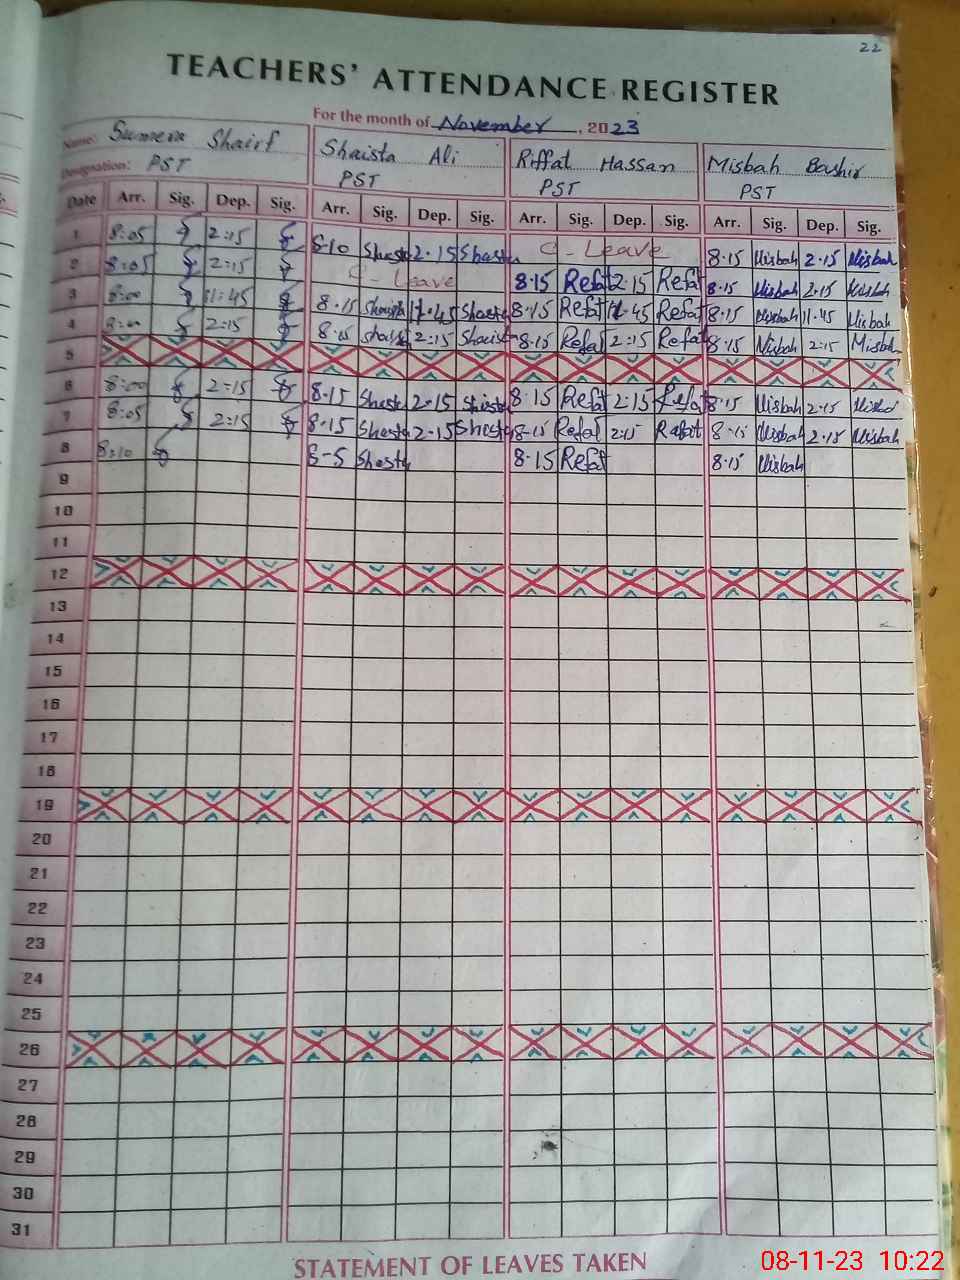 22
TEACHERS' ATTENDANCE REGISTER
For the month of November, 2023
Name: Sumera Sharif Shaista Ali Riffat Hassan Misbah Bashir
Designation: PST PST PST PST
Date Arr. Sig. Dep. Sig. Arr. Sig. Dep. Sig. Arr. Sig. Dep. Sig. Arr. Sig. Dep. Sig.
1 8:05 2:15 8-10 Shasta 2.15 Shasta C - Leave 8.15 Misbah 2.15 Misbah
2 8:05 2:15 C - Leave 8.15 Refat 2.15 Refat 8.15 Misbah 2.15 Misbah
3 8:00 11:45 8.15 Shaista 11.45 Shasta 8.15 Refat 11.45 Refat 8.15 Misbah 11.45 Misbah
4 8:00 2:15 8.15 Shaista 2:15 Shaista 8.15 Refat 2:15 Refat 8.15 Misbah 2:15 Misbah
5
6 8:00 2:15 8.15 Shasta 2.15 Shaista 8.15 Refat 2.15 Refat 8.15 Misbah 2.15 Misbah
7 8:05 2:15 8.15 Shasta 2.15 Shasta 8.15 Refat 2:15 Refat 8.15 Misbah 2.15 Misbah
8 8:10 8-5 Shasta 8.15 Refat 8.15 Misbah
9
10
11
12
13
14
15
16
17
18
19
20
21
22
23
24
25
26
27
28
29
30
31
STATEMENT OF LEAVES TAKEN
08-11-23 10:22